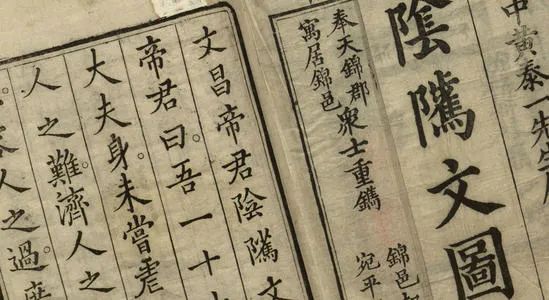 中黄泰一先生
陰隲文圖
奉天錦郡
寓居錦邑
衆士重鐫
錦邑
宛平
文昌帝君陰隲文
帝君曰。吾一十
大夫身未嘗虐
人之難。濟人之
。容人之過。廣